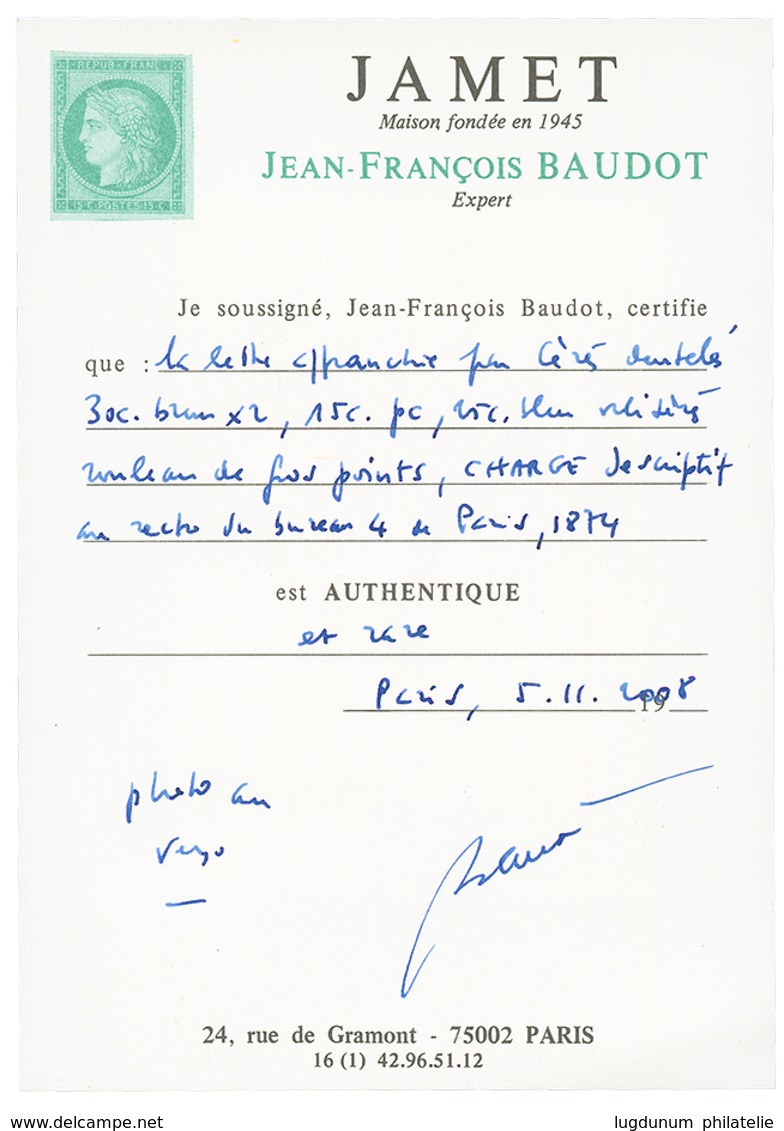 REPUB·FRANC
15·C·POSTES·15·C
JAMET
Maison fondée en 1945
JEAN-FRANÇOIS BAUDOT
Expert
Je soussigné, Jean-François Baudot, certifie
que : la lettre affranchie par Cérès dentelés
30c. brun x2, 15c. pc, 25c. bleu oblitérés
rouleau de gros points, CHARGE descriptif
au recto du bureau 4 de Paris, 1874
est AUTHENTIQUE
et rare
Paris, 5.11. 2008
19
photo au
verso
24, rue de Gramont - 75002 PARIS
16 (1) 42.96.51.12
www.delcampe.net
lugdunum philatelie